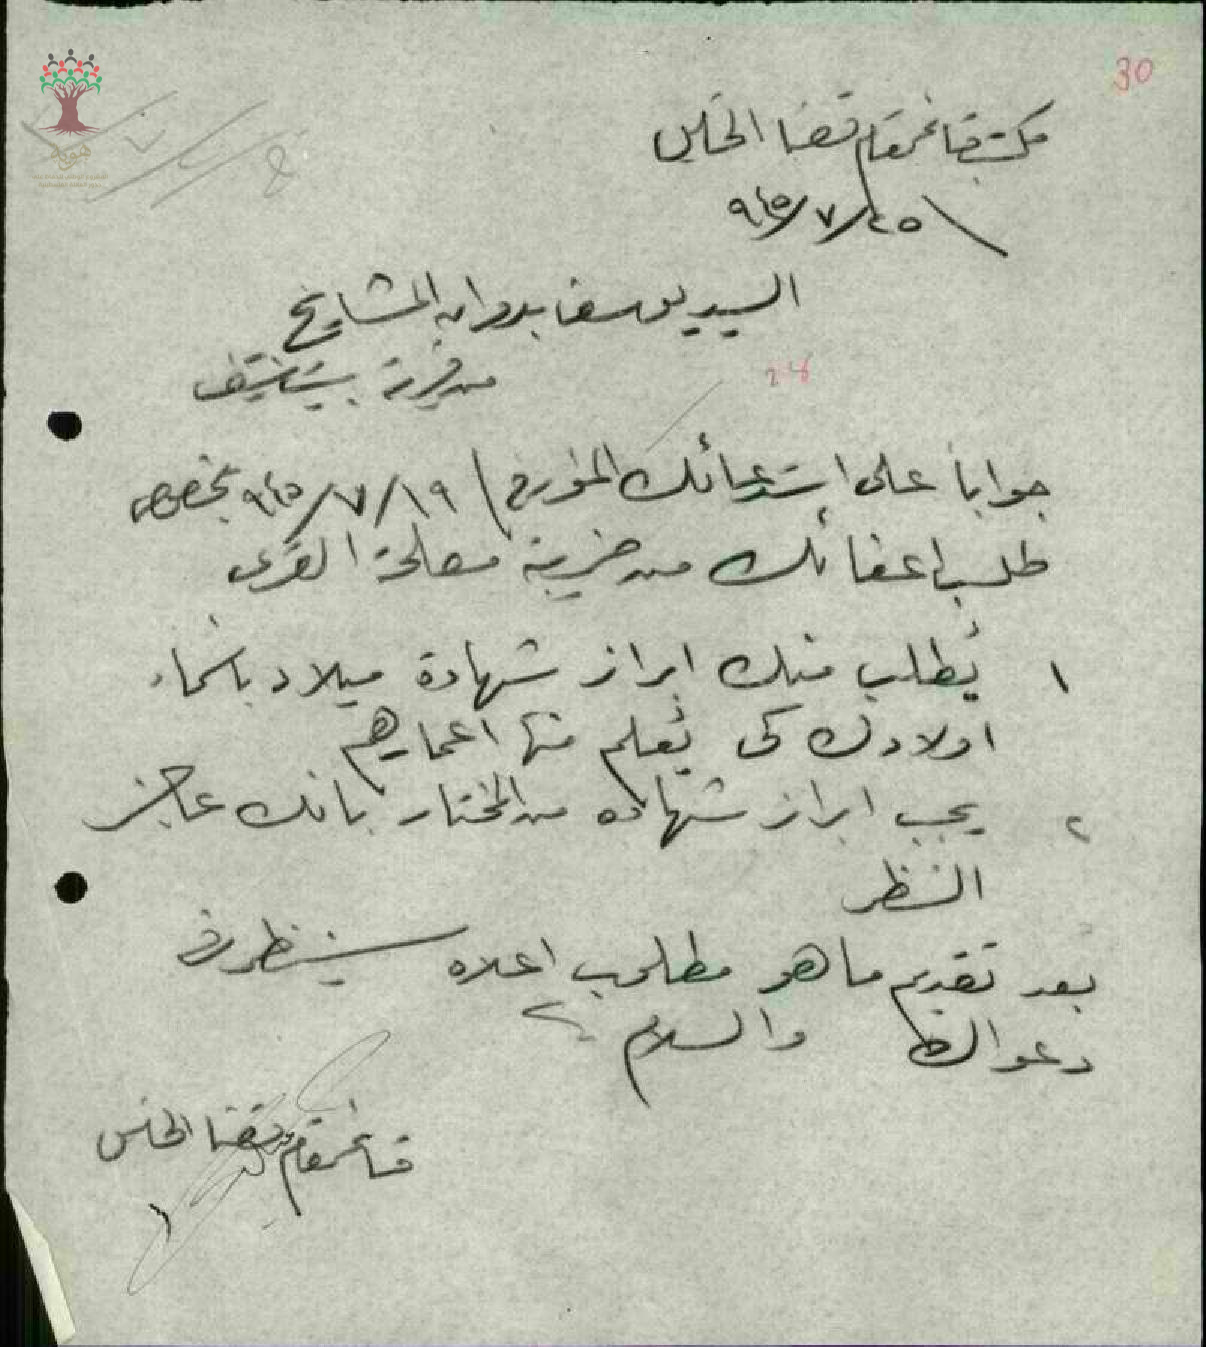 30
مكتب قائمقام قضا الخليل
٢٥/٧/٩٤٥
السيد يوسف بدوان المشايخ
من قرية
جواباً على استدعائك المؤرخ ١٩/٧/٩٤٥ بخصوص
طلب اعفائك من ضريبة مصلحة القرى
١ يُطلب منك ابراز شهادة ميلاد باسماء
اولادك كي يُعلم منها اعمارهم
٢ يجب ابراز شهاده من المختار بانك عاجز
النظر
بعد تقديم ما هو مطلوب اعلاه سينظر في
دعواك والسلام
قائمقام قضا الخليل
هوية